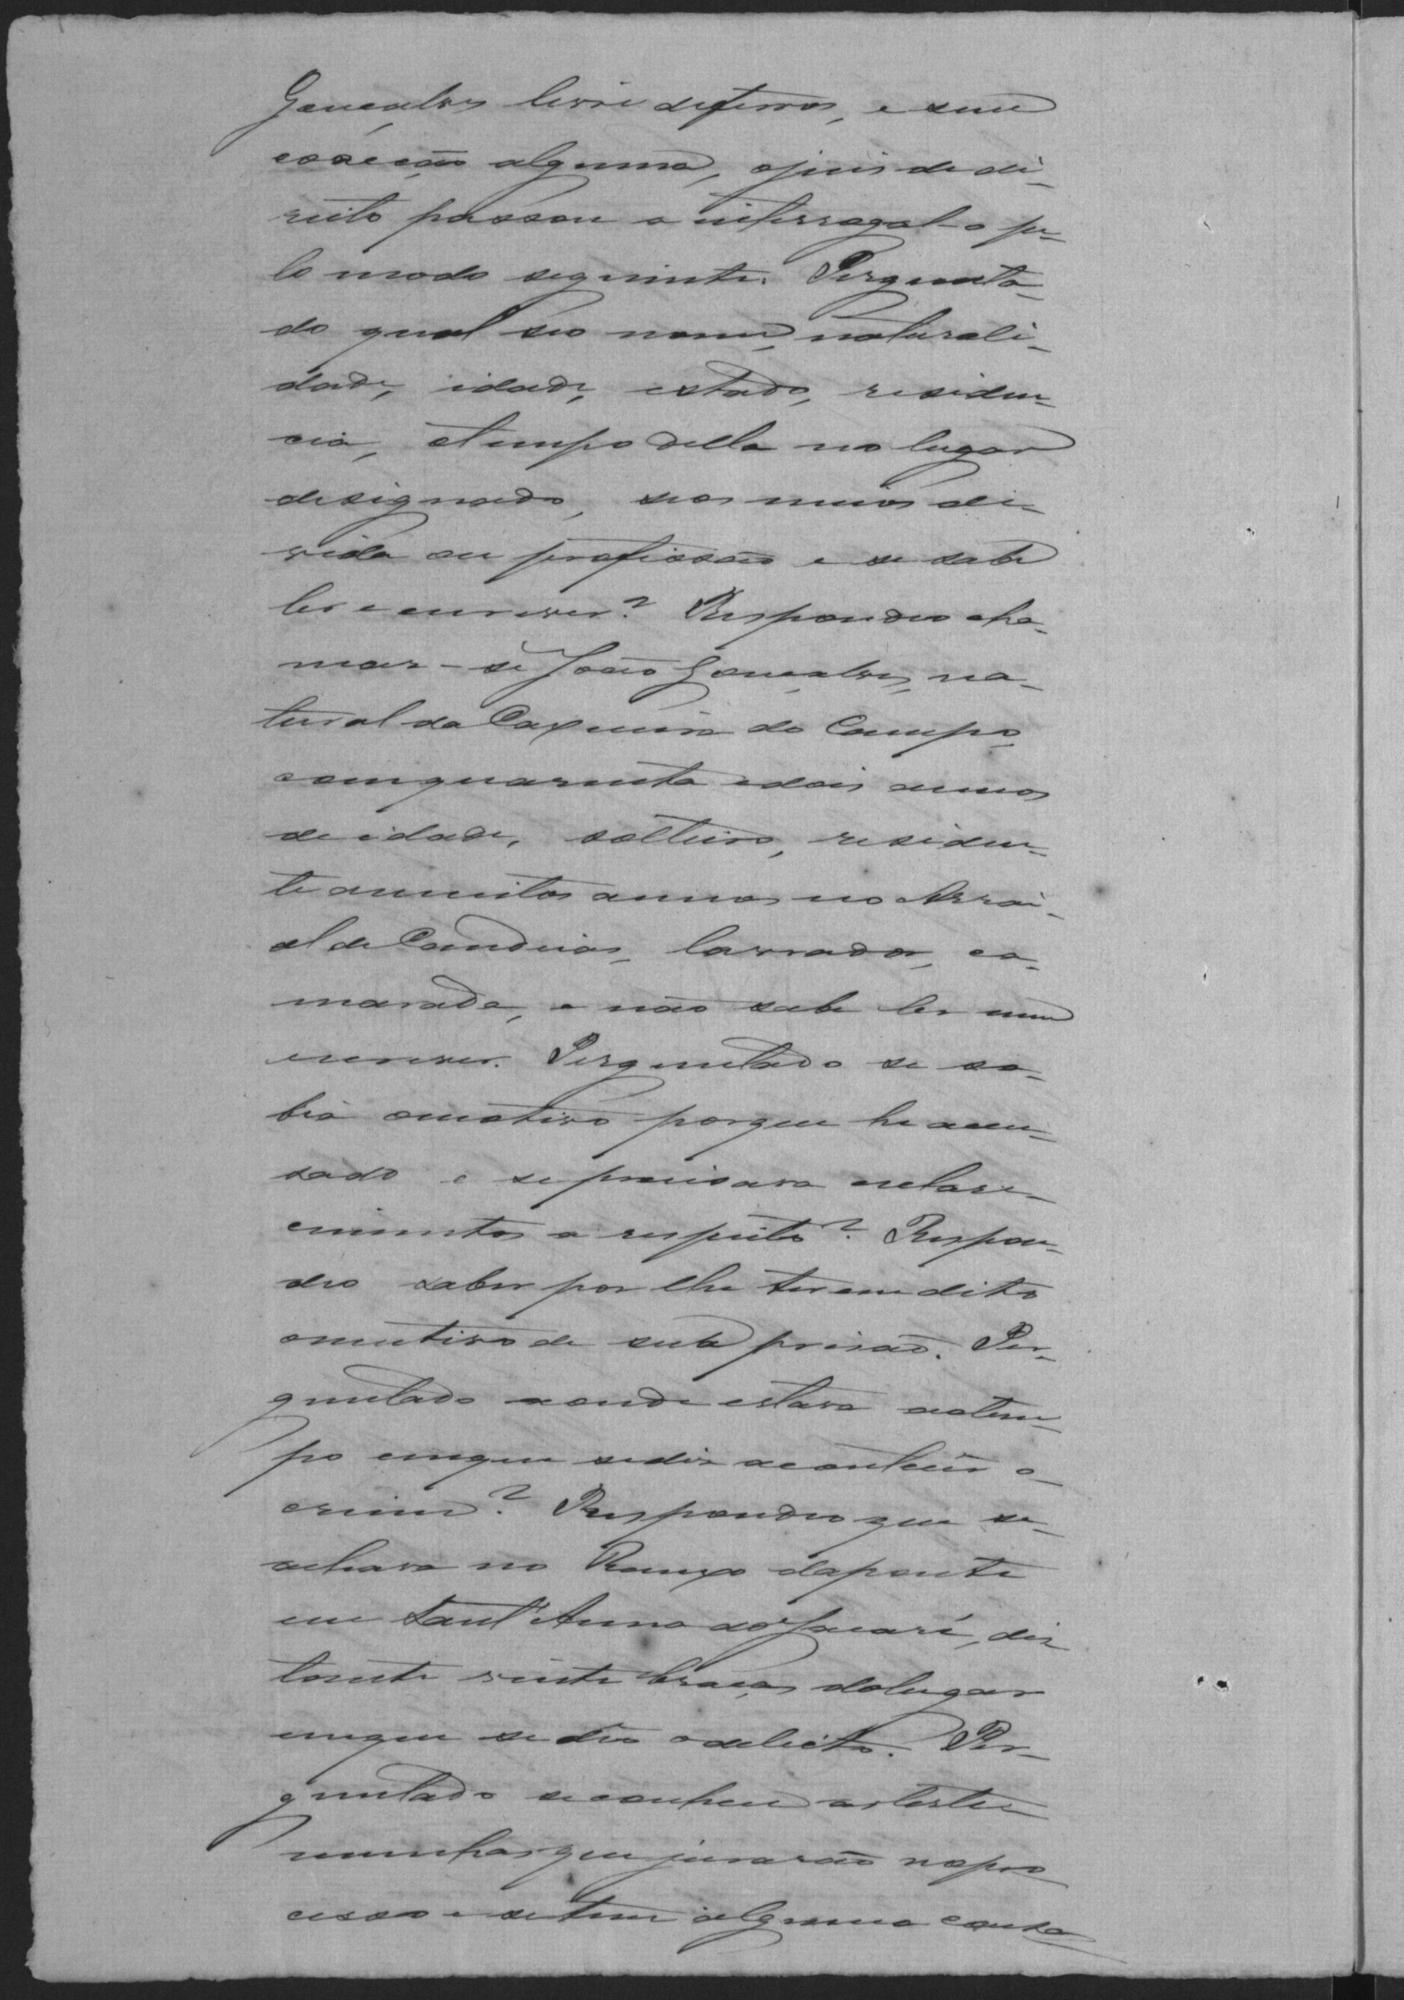 Gonçalves livre de ferros, e sem
coacção alguma, o juis de di-
reito passou a interrogal-o pe-
lo modo seguinte. Pergunta-
do qual seo nome, naturali-
dade, idade, estado, residen-
cia, e tempo della no lugar
designado, seos meios de
vida ou profissão e se sabe
ler e escrever? Respondeo cha-
mar-se João Gonçalves, na-
tural da Caxueira do Campo,
com quarenta e dois annos
de idade, solteiro, residen-
te a muitos annos no Arrai-
al de Candeias, lavrador, ca-
marada, e não sabe ler nem
escrever. Perguntado se sa-
bia o motivo porque he accu-
sado e se precisava esclare-
cimentos a respeito? Respon-
deo saber por lhe terem dito
o motivo de sua prisão. Per-
guntado aonde estava ao tem-
po em que se diz aconteceo o
crime? Respondeo que se
achava no Ranxo da ponte
em Sant'Anna do Jacaré, dis
tante vinte braças do lugar
em que se deo o delicto. Per-
guntado se conhece as teste-
munhas que jurarão no pro
cesso e se tem alguma cousa